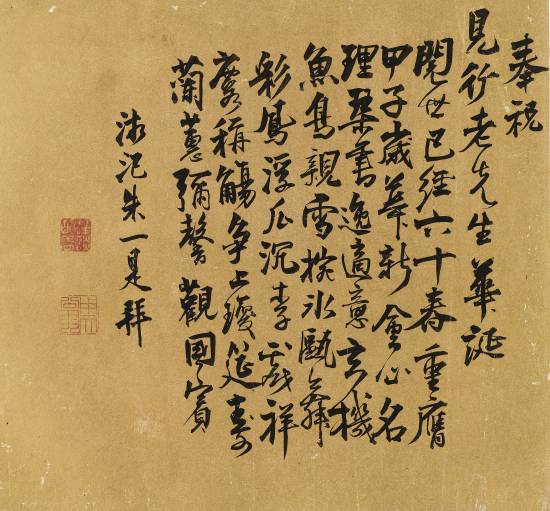 奉祝
見行老先生華誕
閱世已經六十春重膺
甲子歲華新會心名
理琴書逸適意玄機
魚鳥親雪椀冰甌舞
彩鳳浮瓜沉李戲祥
麐稱觴爭上瓊筵壽
蘭蕙彌馨觀國賓
朱一是拜